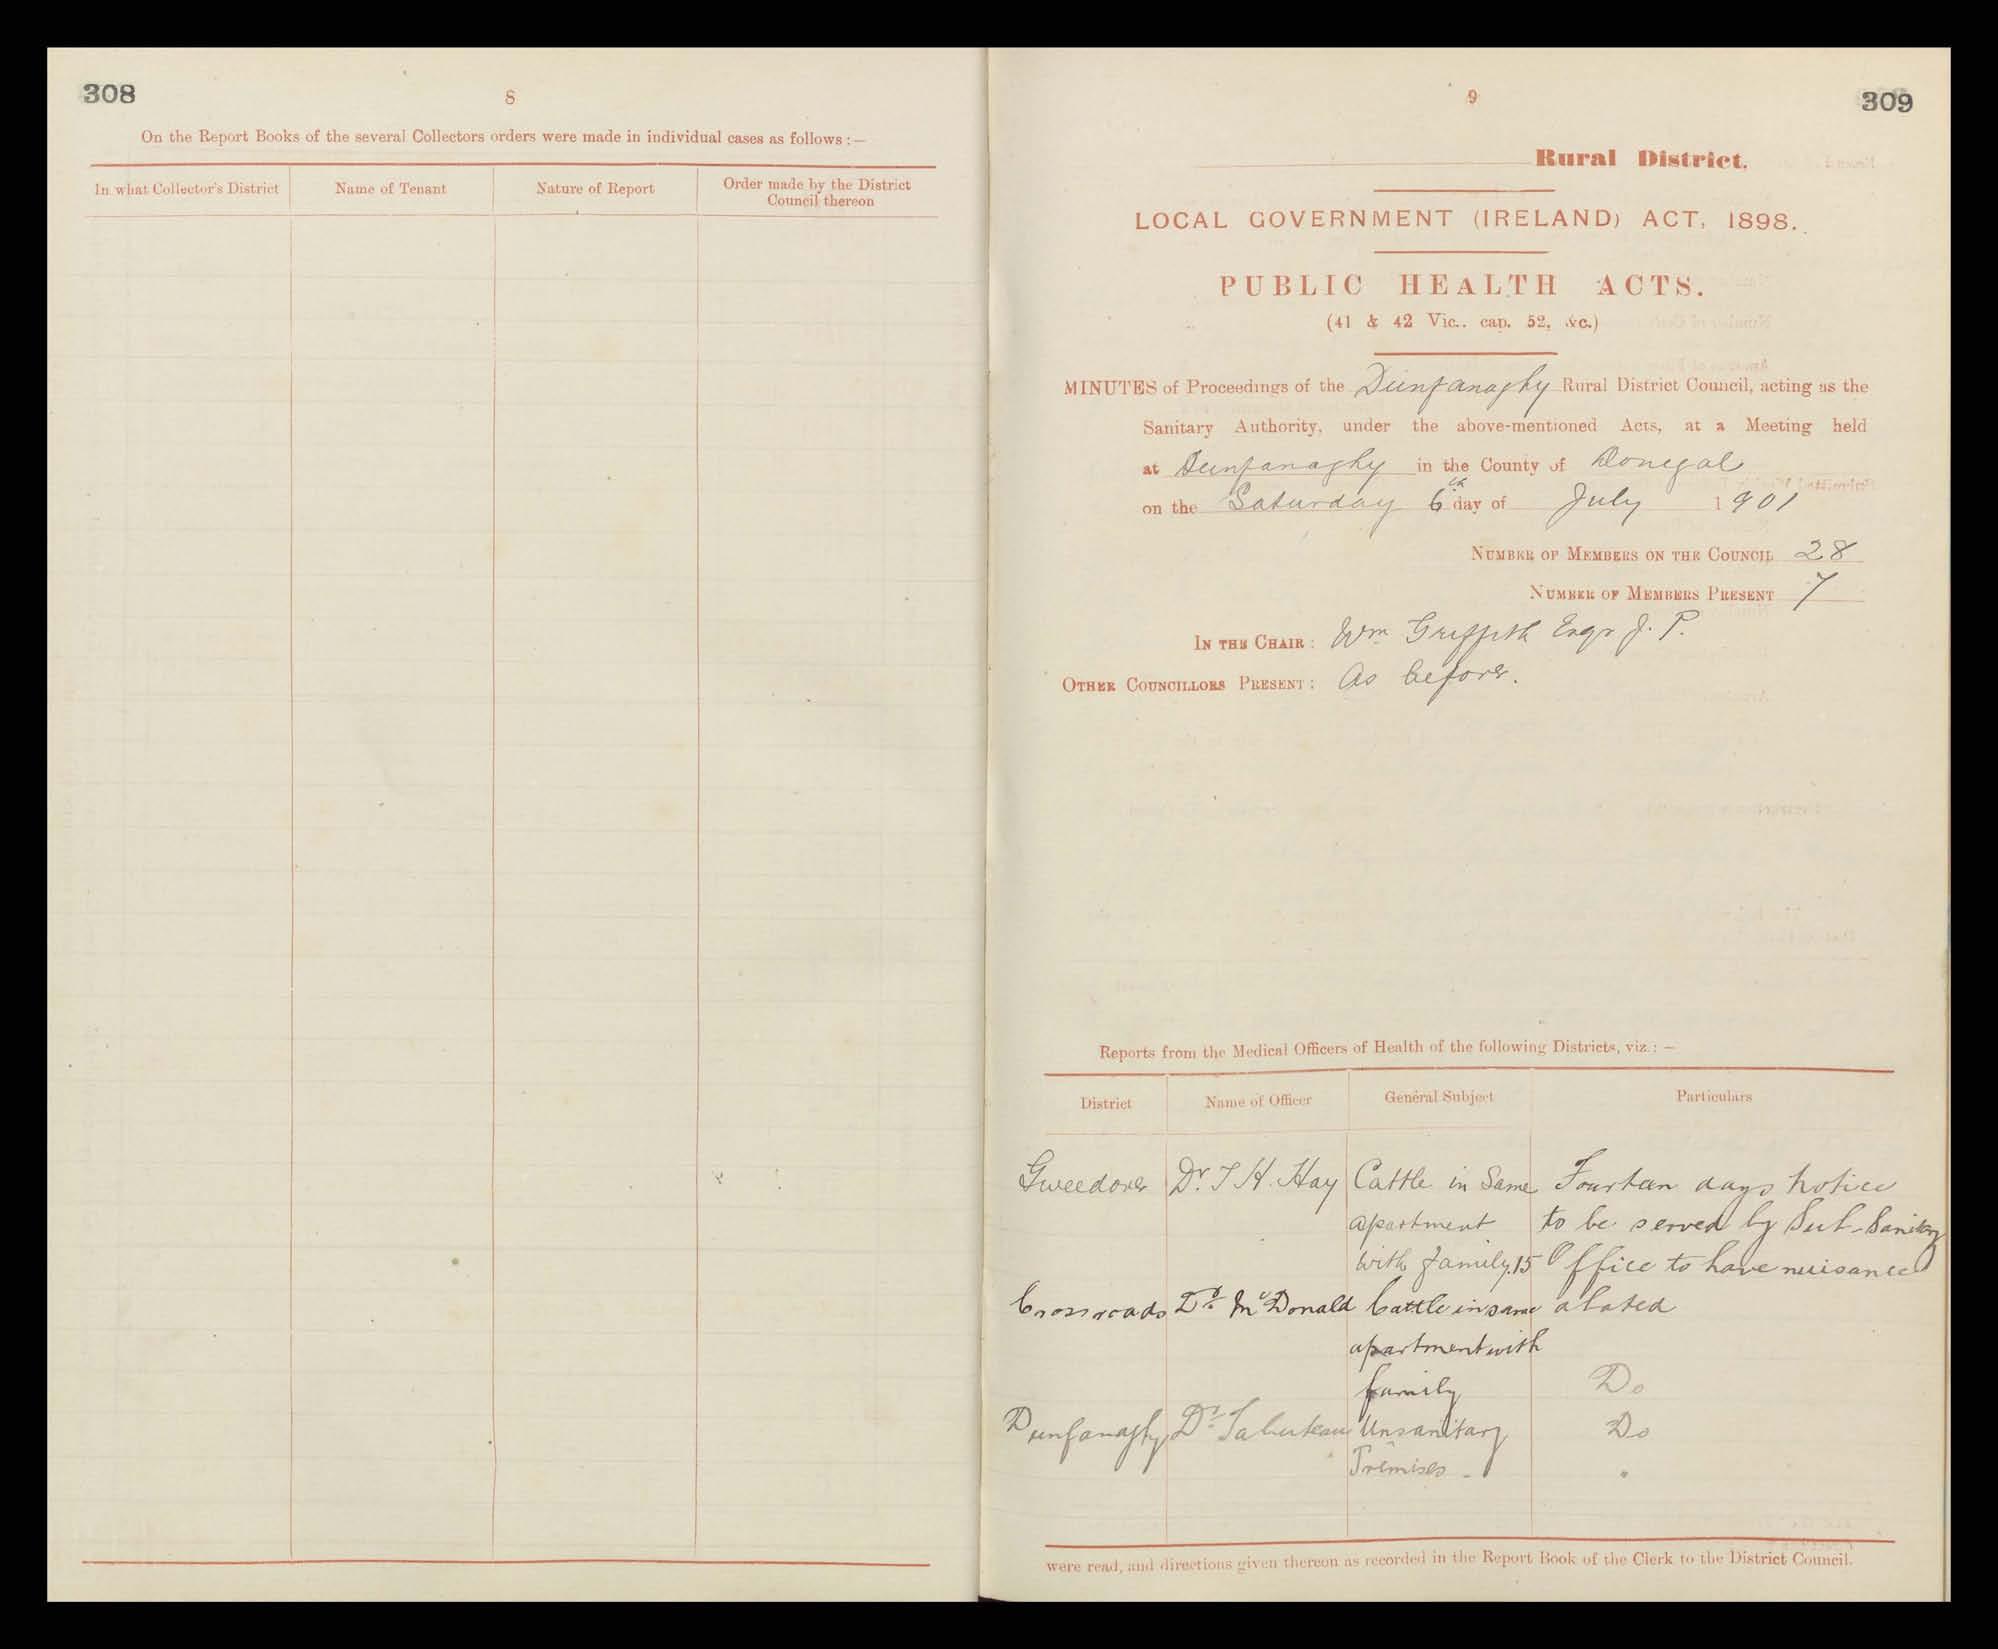 308
8
On the Report Books of the several Collectors orders were made in individual cases as follows :—
In what Collector's District
Name of Tenant
Nature of Report
Order made by the District
Council thereon
9
309
Rural District.
LOCAL GOVERNMENT (IRELAND) ACT, 1898.
PUBLIC HEALTH ACTS.
(41 & 42 Vic.. cap. 52, &c.)
MINUTES of Proceedings of the Dunfanaghy Rural District Council, acting as the
Sanitary Authority, under the above-mentioned Acts, at a Meeting held
at Dunfanaghy in the County of Donegal
on the Saturday 6th day of July 1901
NUMBER OF MEMBERS ON THE COUNCIL 28
NUMBER OF MEMBERS PRESENT 7
IN THE CHAIR : Wm Griffith Esqr J. P.
OTHER COUNCILLORS PRESENT : As before.
Reports from the Medical Officers of Health of the following Districts, viz.: —
District
Name of Officer
General Subject
Particulars
Gweedore Dr. J H. Hay Cattle in Same Fourteen days notice
apartment to be served by Sub-Sanitary
with family. 15 Office to have nuisance
Crossroads Dr. McDonald Cattle in same abated
apartment with
family Do
Dunfanaghy Dr. Labuteau Unsanitary Do
Premises - "
were read, and directions given thereon as recorded in the Report Book of the Clerk to the District Council.